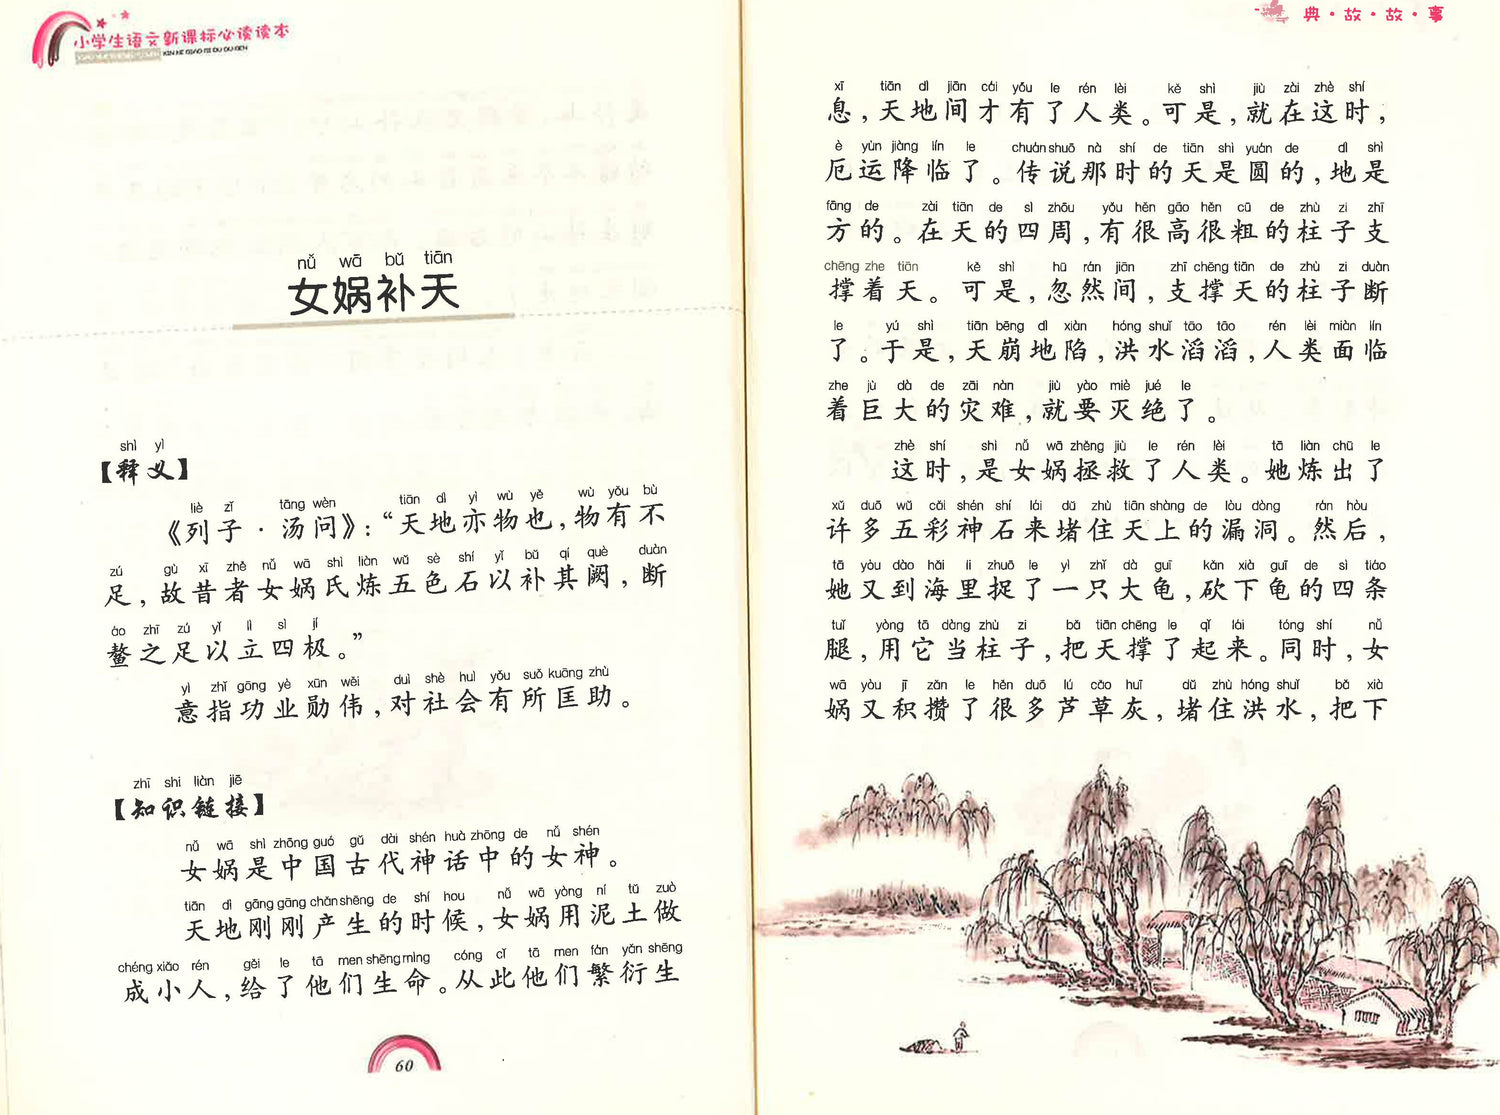 小学生语文新课标必读读本
nǚ wā bǔ tiān
女娲补天
shì yì
【释义】
liè zǐ tāng wèn tiān dì yì wù yě wù yǒu bù
《列子·汤问》：“天地亦物也，物有不
zú gù xī zhě nǚ wā shì liàn wǔ sè shí yǐ bǔ qí quē duàn
足，故昔者女娲氏炼五色石以补其阙，断
áo zhī zú yǐ lì sì jí
鳌之足以立四极。”
yì zhǐ gōng yè xūn wěi duì shè huì yǒu suǒ kuāng zhù
意指功业勋伟，对社会有所匡助。
zhī shi liàn jiē
【知识链接】
nǚ wā shì zhōng guó gǔ dài shén huà zhōng de nǚ shén
女娲是中国古代神话中的女神。
tiān dì gāng gāng chǎn shēng de shí hou nǚ wā yòng ní tǔ zuò
天地刚刚产生的时候，女娲用泥土做
chéng xiǎo rén gěi le tā men shēng mìng cóng cǐ tā men fán yǎn shēng
成小人，给了他们生命。从此他们繁衍生
60
典·故·故·事
xī tiān dì jiān cái yǒu le rén lèi kě shì jiù zài zhè shí
息，天地间才有了人类。可是，就在这时，
è yùn jiàng lín le chuán shuō nà shí de tiān shì yuán de dì shì
厄运降临了。传说那时的天是圆的，地是
fāng de zài tiān de sì zhōu yǒu hěn gāo hěn cū de zhù zi zhī
方的。在天的四周，有很高很粗的柱子支
chēng zhe tiān kě shì hū rán jiān zhī chēng tiān de zhù zi duàn
撑着天。可是，忽然间，支撑天的柱子断
le yú shì tiān bēng dì xiàn hóng shuǐ tāo tāo rén lèi miàn lín
了。于是，天崩地陷，洪水滔滔，人类面临
zhe jù dà de zāi nàn jiù yào miè jué le
着巨大的灾难，就要灭绝了。
zhè shí shì nǚ wā zhěng jiù le rén lèi tā liàn chū le
这时，是女娲拯救了人类。她炼出了
xǔ duō wǔ cǎi shén shí lái dǔ zhù tiān shàng de lòu dòng rán hòu
许多五彩神石来堵住天上的漏洞。然后，
tā yòu dào hǎi li zhuō le yì zhī dà guī kǎn xià guī de sì tiáo
她又到海里捉了一只大龟，砍下龟的四条
tuǐ yòng tā dàng zhù zi bǎ tiān chēng le qǐ lái tóng shí nǚ
腿，用它当柱子，把天撑了起来。同时，女
wā yòu jī zǎn le hěn duō lú cǎo huī dǔ zhù hóng shuǐ bǎ xià
娲又积攒了很多芦草灰，堵住洪水，把下